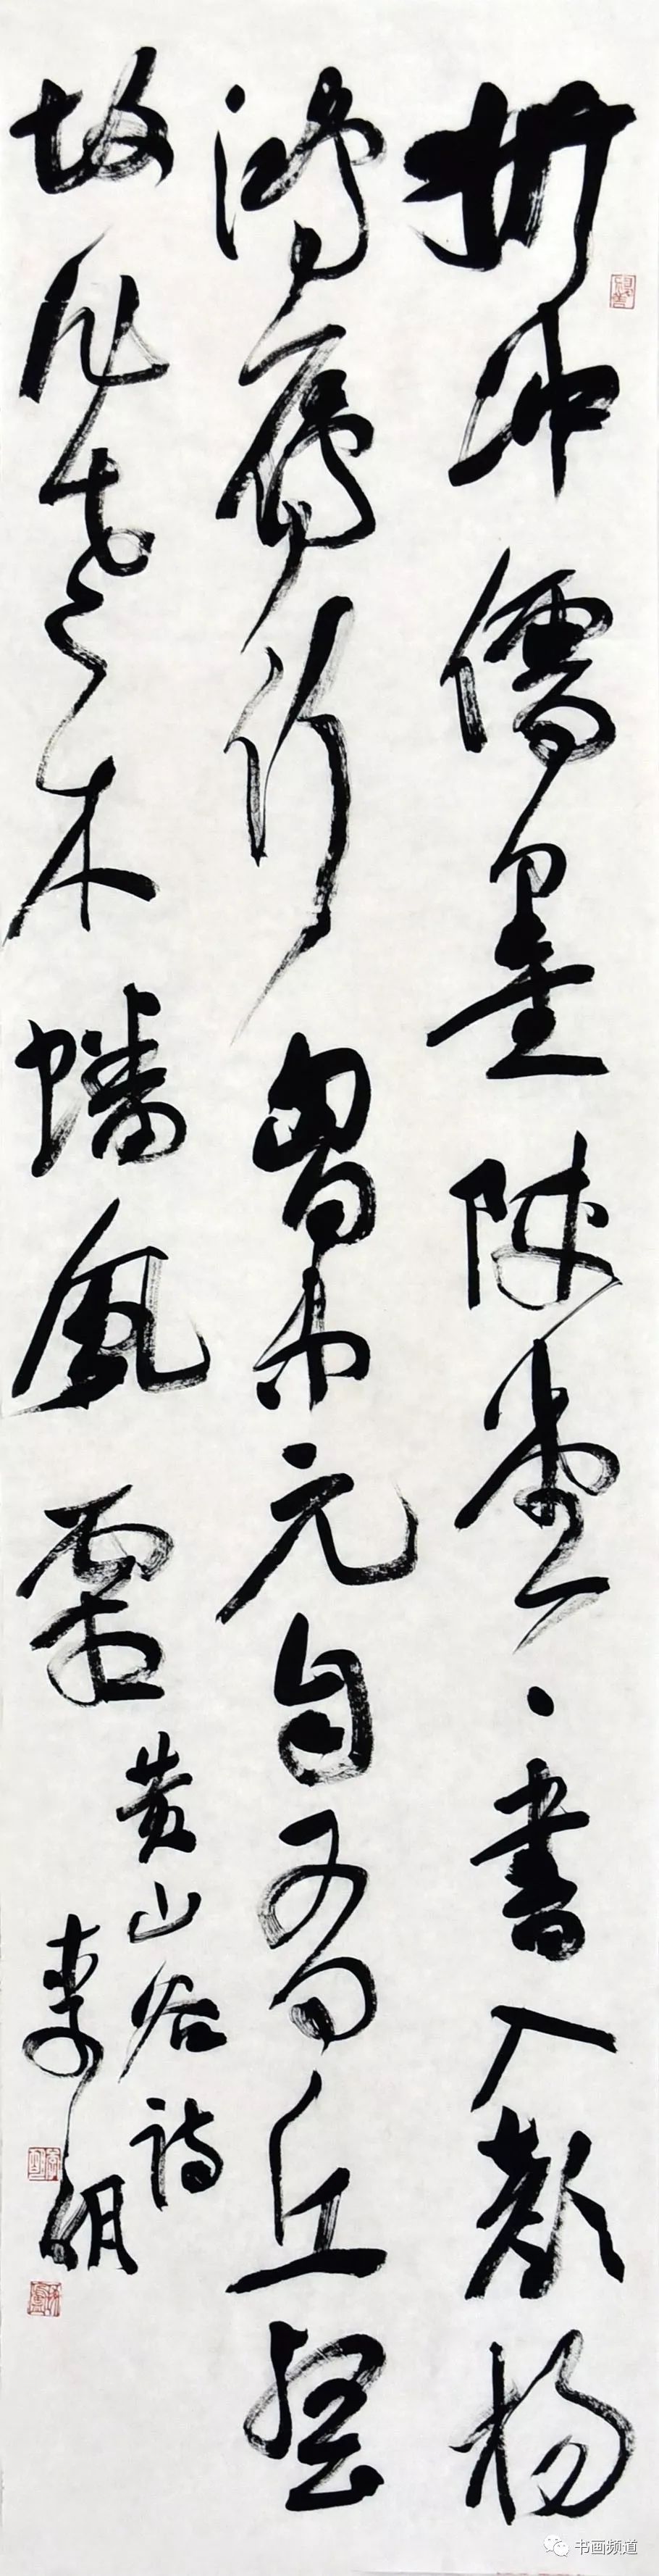 折冲儒墨陣堂、書入顏楊
鴻鴈行胷中元自有丘壑
故作老木蟠風霜
黄山谷詩
李明
书画频道